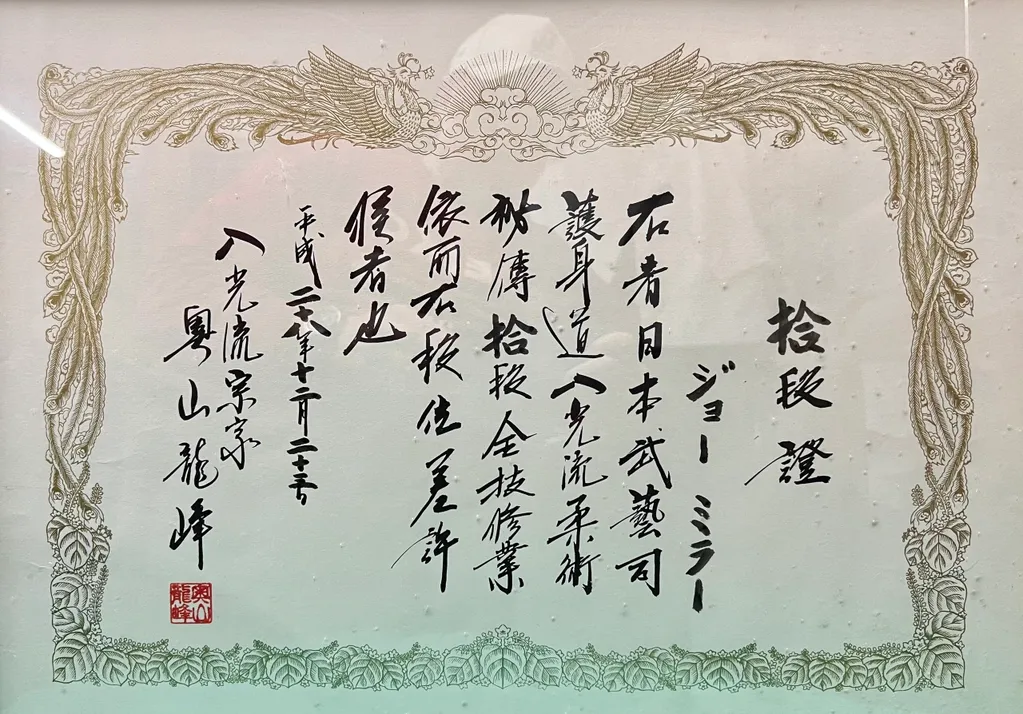 拾段證
ジョー ミラー
右者日本武藝司
護身道八光流柔術
秘傳拾段全技修業
依而右段位差許
候者也
平成二十八年十二月二十三日
八光流宗家
奥山龍峰
奥山龍峰